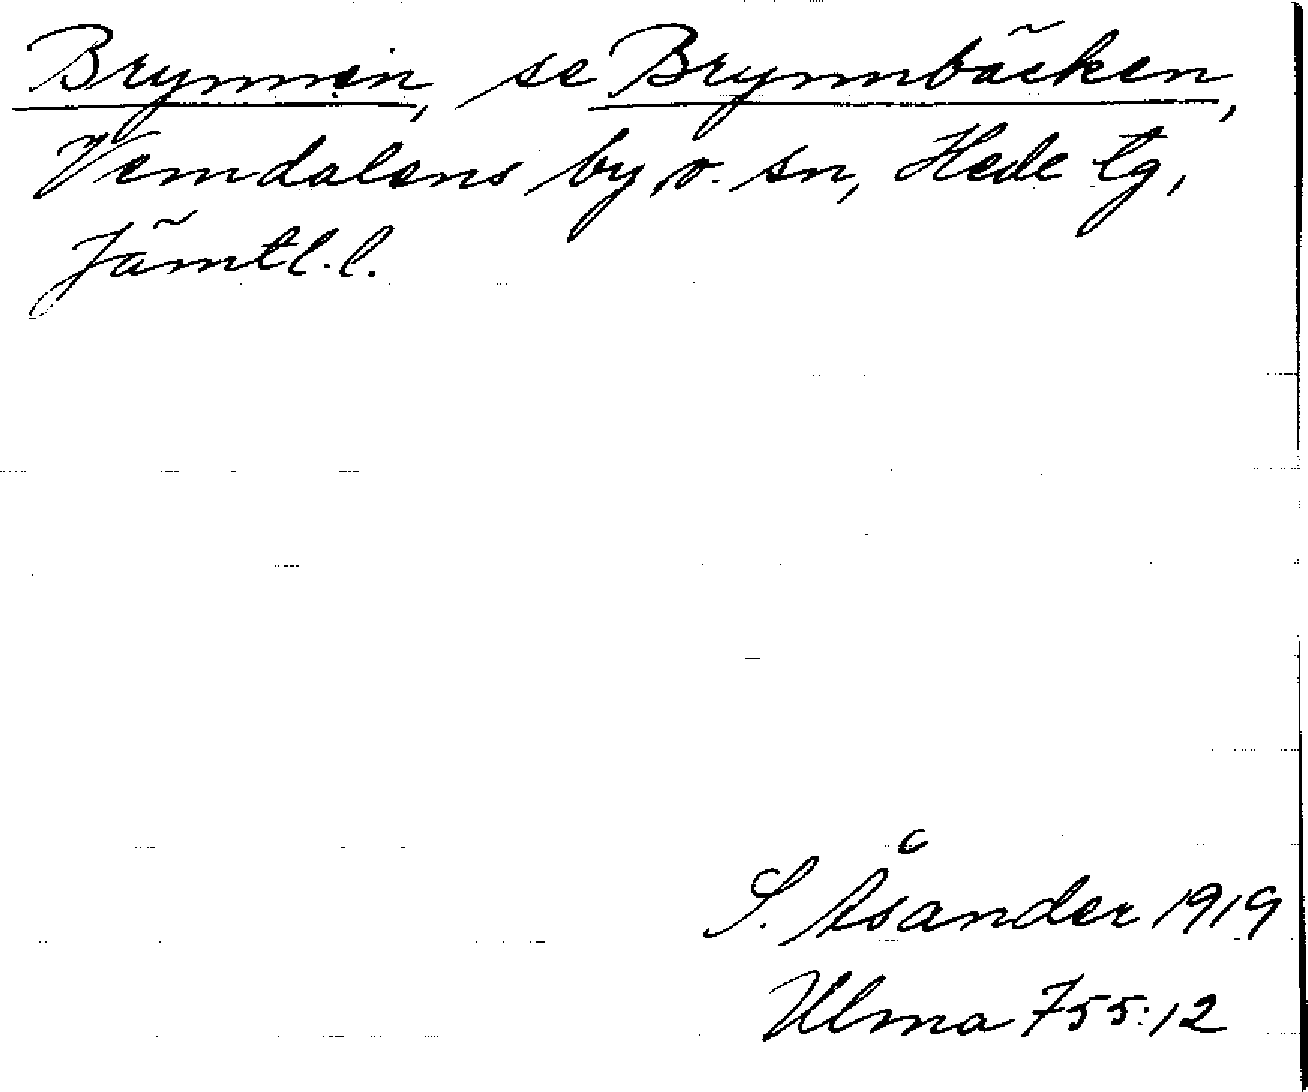 Brynnen, se Brynnbäcken,
Vemdalens by o. sn, Hede tg,
Jämtl. l.
S. Åsander 1919
Ulma 755:12